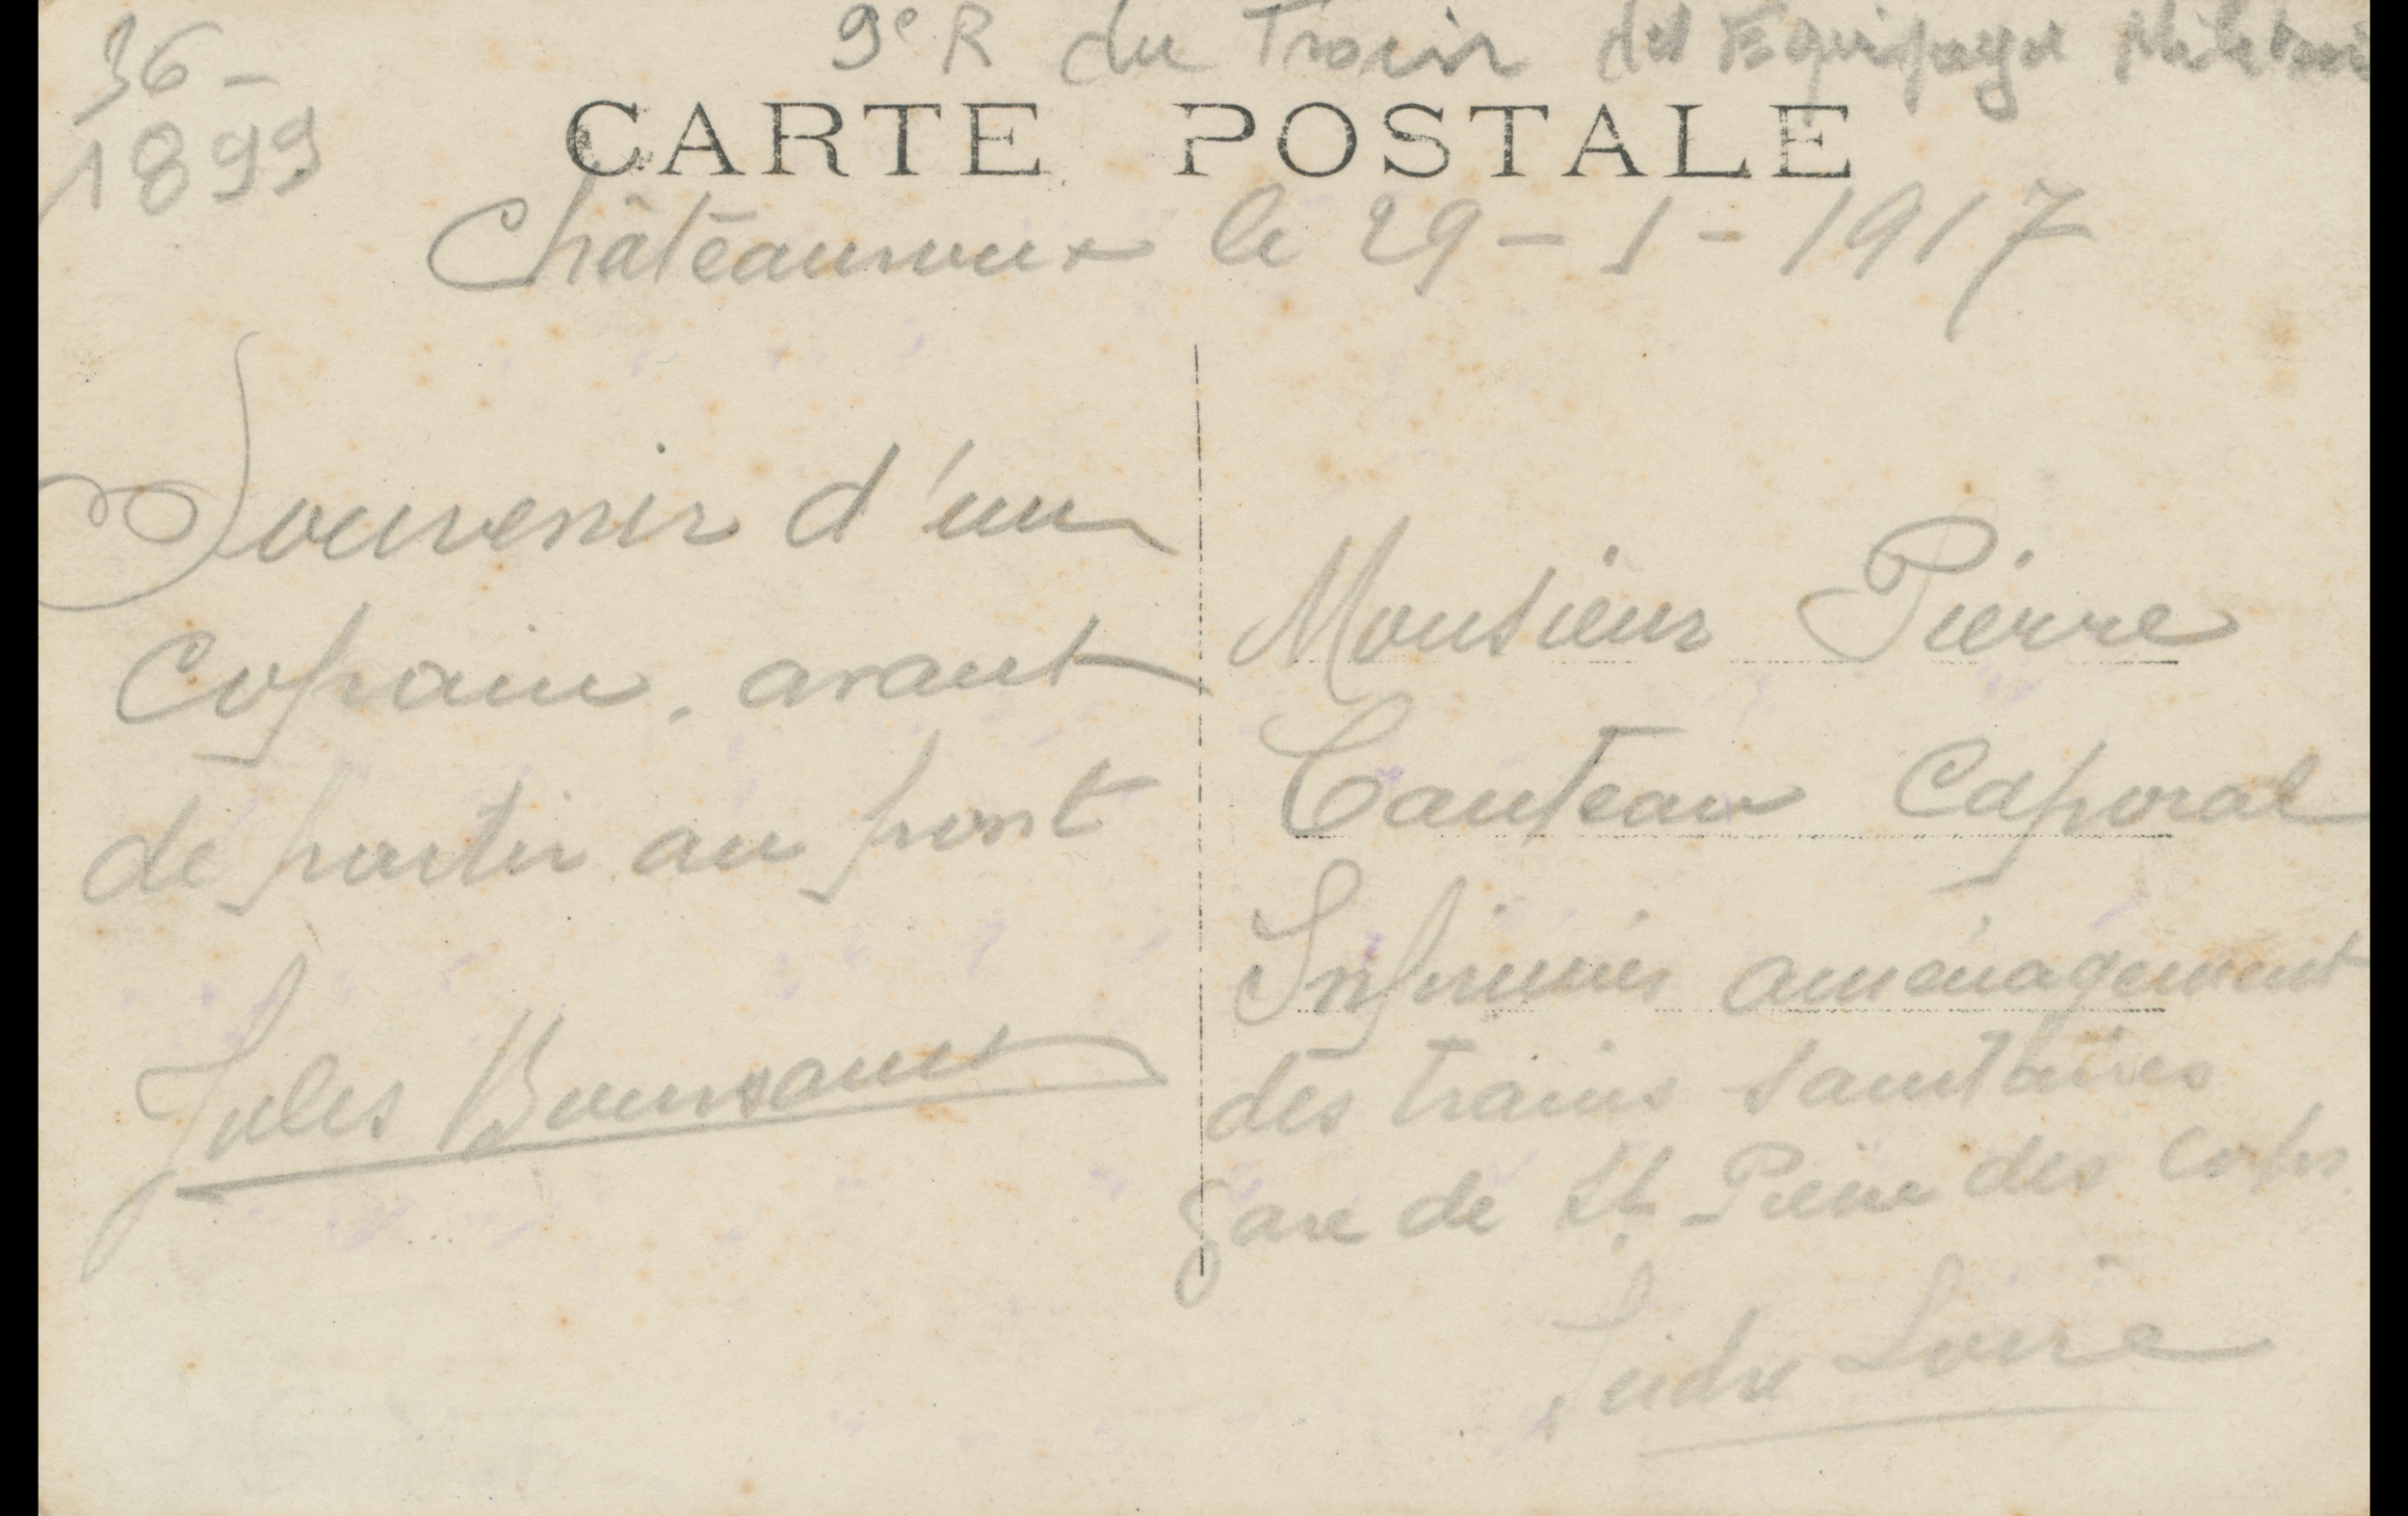 36-
1899
9e R du Train des Equipages Militaires
CARTE POSTALE
Châteauroux le 29-1-1917
Souvenir d'un
Copain. avant
de partir au front
Jules
Monsieur Pierre
Caporal
Infirmier aménagement
des trains sanitaires
gare de St Pierre des Corps
Indre Loire